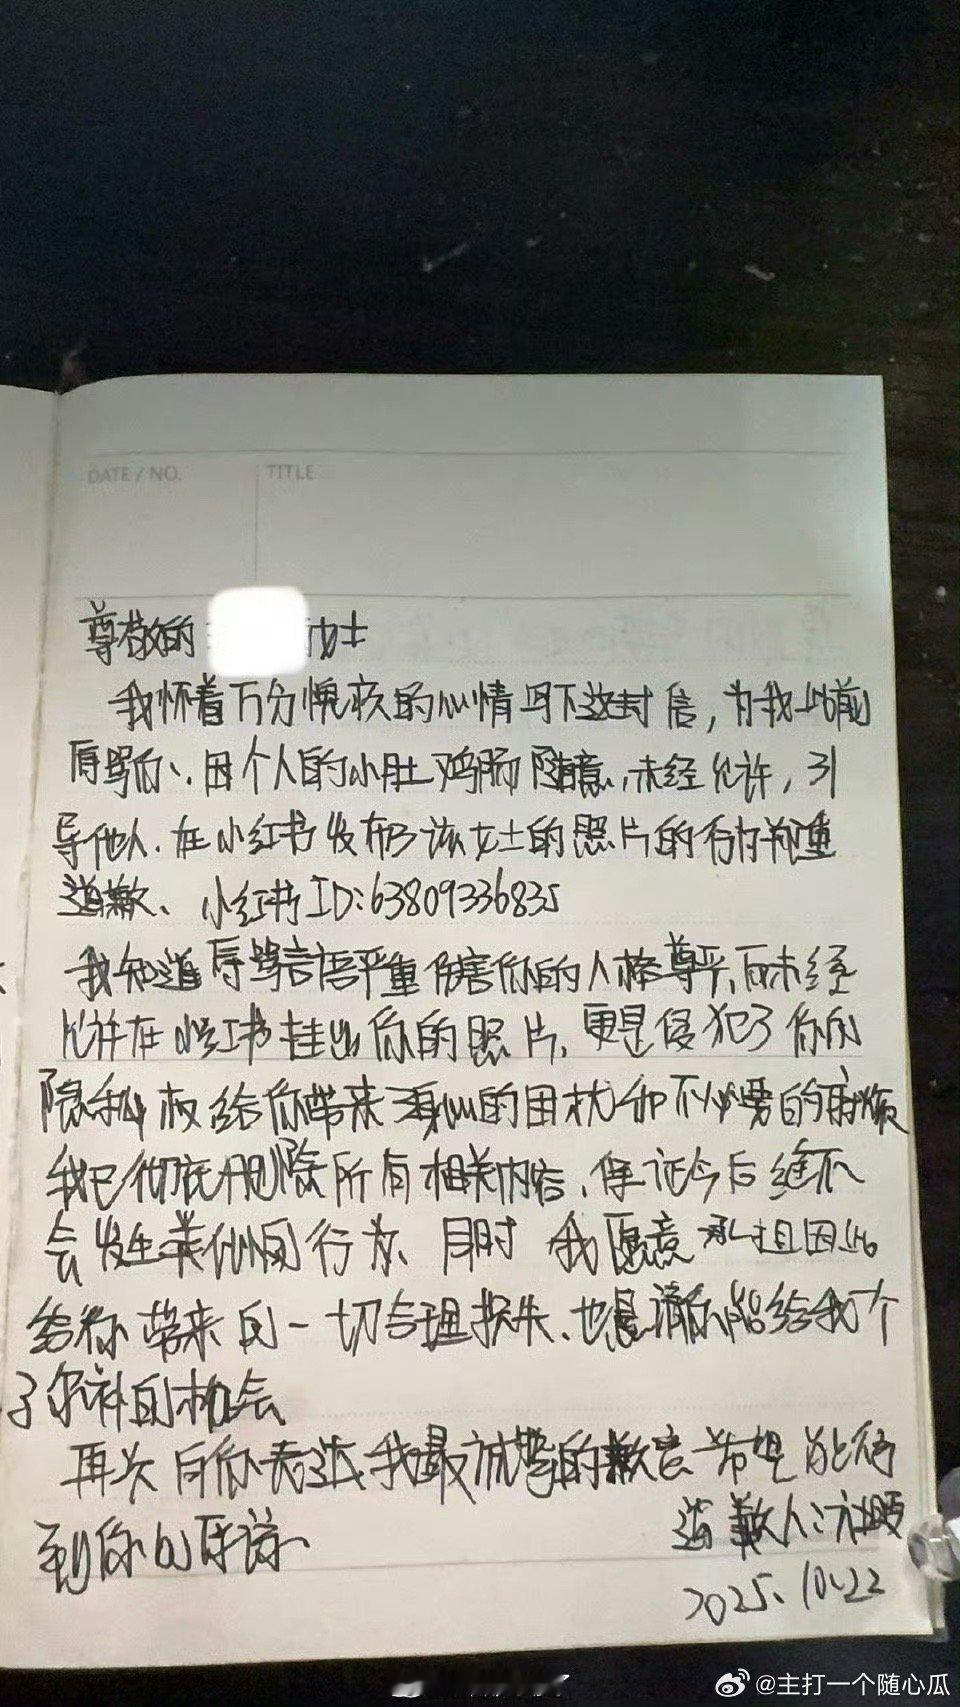 DATE / NO.
TITLE
尊敬的 女士
我怀着万分愧疚的心情写下这封信，为我此前
辱骂你、因个人的小肚鸡肠随意，未经允许，引
导他人、在小红书发布了该女士的照片的行为郑重
道歉、小红书ID:63809336835
我知道辱骂言语严重伤害你的人格尊严、而未经
允许在小红书挂出你的照片、更是侵犯了你的
隐私权给你带来身心的困扰和不必要的麻烦
我已彻底删除所有相关内容、保证今后绝不
会发生类似的行为、同时 我愿意承担因此
给你带来的一切合理损失、也恳请你能给我个
了弥补的机会
再次向你表达我最诚挚的歉意 希望能得
到你的原谅、
道歉人:
2025.10.22
@主打一个随心瓜